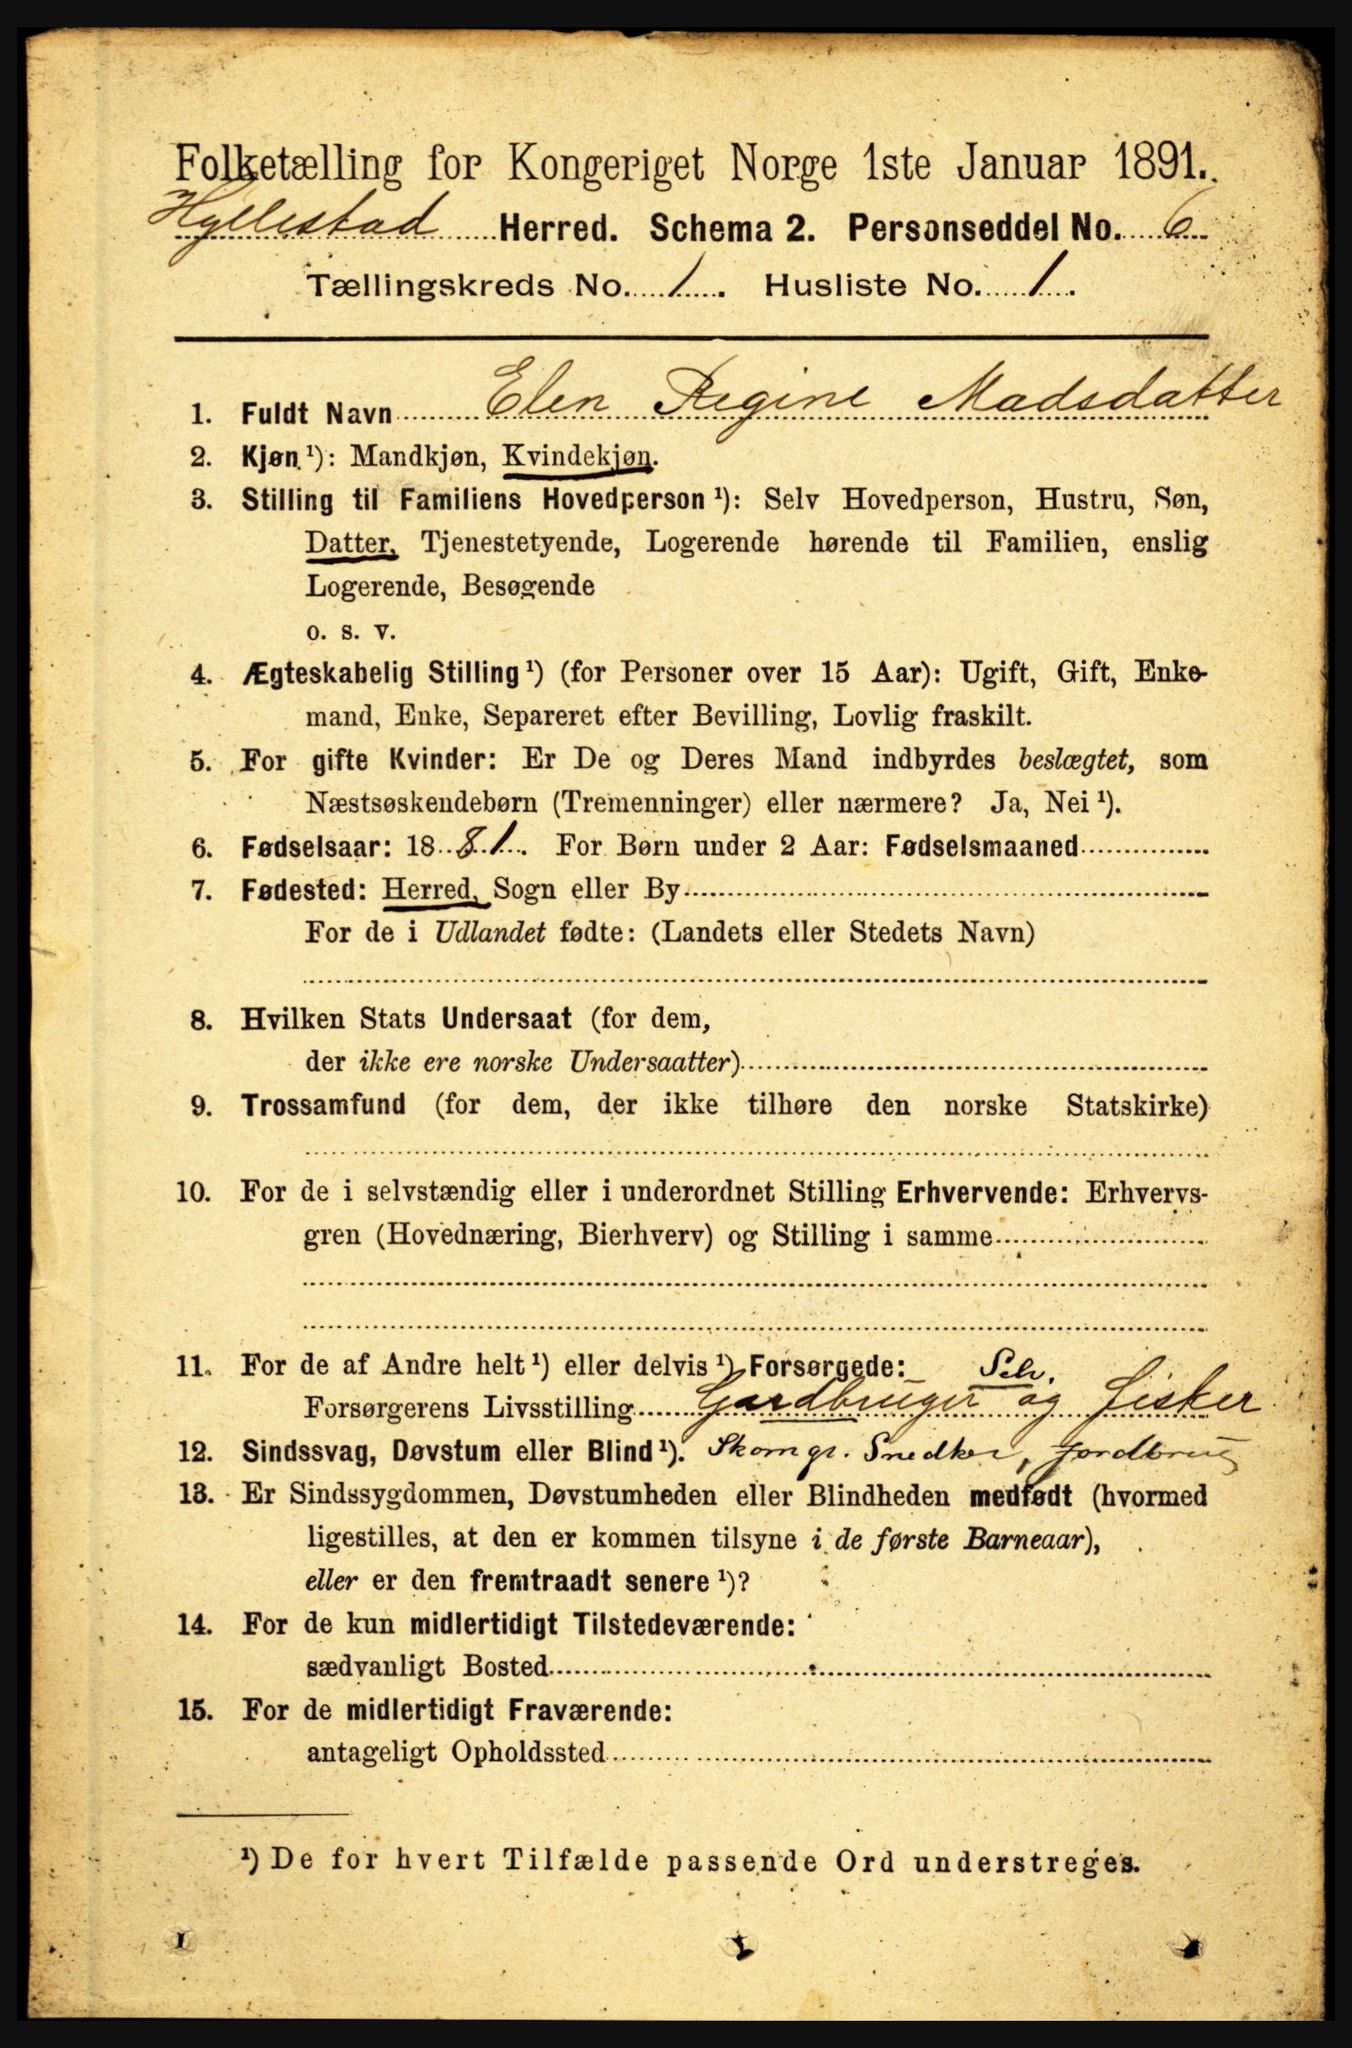 Folketælling for Kongeriget Norge 1ste Januar 1891.
Hyllestad Herred. Schema 2. Personseddel No. 6
Tællingskreds No. 1. Husliste No. 1.
1. Fuldt Navn Elen Regine Madsdatter
2. Kjøn ¹): Mandkjøn, Kvindekjøn.
3. Stilling til Familiens Hovedperson ¹): Selv Hovedperson, Hustru, Søn,
Datter, Tjenestetyende, Logerende hørende til Familien, enslig
Logerende, Besøgende
o. s. v.
4. Ægteskabelig Stilling ¹) (for Personer over 15 Aar): Ugift, Gift, Enke-
mand, Enke, Separeret efter Bevilling, Lovlig fraskilt.
5. For gifte Kvinder: Er De og Deres Mand indbyrdes beslægtet, som
Næstsøskendebørn (Tremenninger) eller nærmere? Ja, Nei ¹).
6. Fødselsaar: 1881. For Børn under 2 Aar: Fødselsmaaned
7. Fødested: Herred, Sogn eller By
For de i Udlandet fødte: (Landets eller Stedets Navn)
8. Hvilken Stats Undersaat (for dem,
der ikke ere norske Undersaatter)
9. Trossamfund (for dem, der ikke tilhøre den norske Statskirke)
10. For de i selvstændig eller i underordnet Stilling Erhvervende: Erhvervs-
gren (Hovednæring, Bierhverv) og Stilling i samme
11. For de af Andre helt ¹) eller delvis ¹) Forsørgede: Selv.
Forsørgerens Livsstilling Gardbruger og fisker
12. Sindssvag, Døvstum eller Blind ¹). Skomgr. Snedker, jordbrug
13. Er Sindssygdommen, Døvstumheden eller Blindheden medfødt (hvormed
ligestilles, at den er kommen tilsyne i de første Barneaar),
eller er den fremtraadt senere ¹)?
14. For de kun midlertidigt Tilstedeværende:
sædvanligt Bosted
15. For de midlertidigt Fraværende:
antageligt Opholdssted
¹) De for hvert Tilfælde passende Ord understreges.